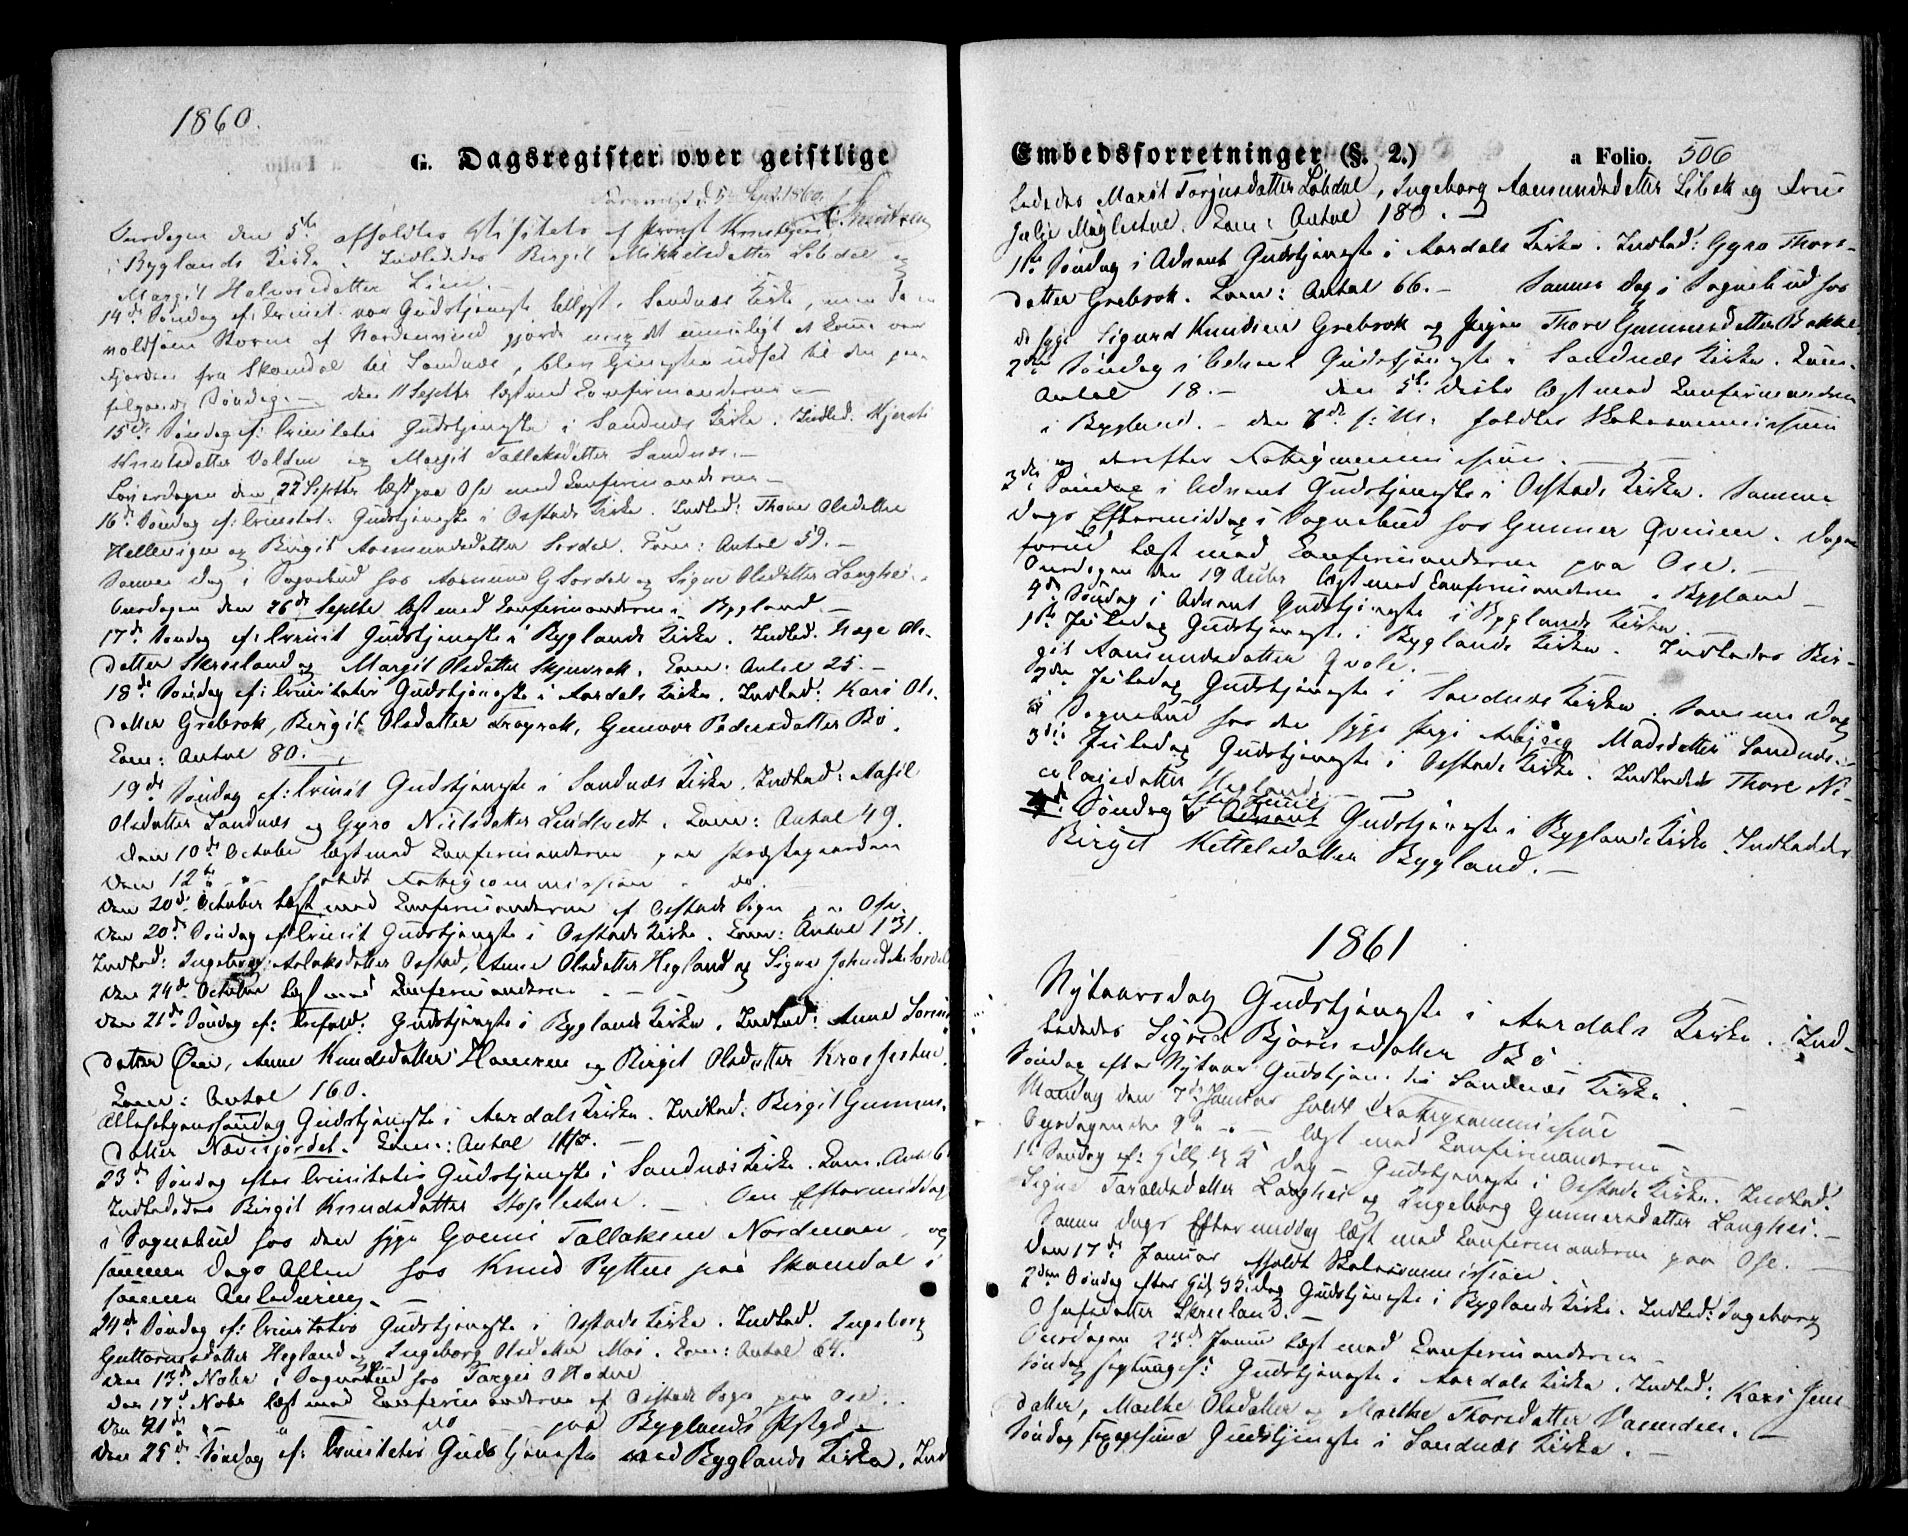 1860.
G. Dagsregister over geistlige
d. 5te Sept. 1860.
Onsdagen den 5te afholdtes Visitats af Provst
i Byglands Kirke. Indlededes Birgit Mikkelsdatter Løbdal og
Margit Halvorsdatter Lien.
14de Søndag ef: Trinit: var Gudstjeneste tillyst i Sandnæs Kirke, men da en
voldsom Storm af Nordenvind gjorde mig det umuligt at komme over
Fjorden fra Skomdal til Sandnæs, blev Gjenesten udsat til den paa-
følgende Søndag. — den 11 Septbr læst med Confirmanderne —
15de Søndag ef: Trinitatis Gudstjeneste i Sandnæs Kirke. Indled. Kjersti
Knutsdatter Valden og Margit Tallaksdatter Sandnæs. —
Løverdagen den 22 Septbr læst paa Ose med Confirmanderne —
16de Søndag ef: Trinitat: Gudstjeneste i Osstads Kirke. Indled: Thone Olsdatter
Hellevigen og Birgit Aasmundsdatter Sordal. Com: Antal 59. —
Samme Dag i Sognebud hos Aasmund G. Sordal og Signe Olsdatter Langhei.
Onsdagen den 26de Septbr læst med Confirmanderne i Bygland —
17de Søndag ef: Trinit Gudstjeneste i Byglands Kirke. Indled. Aage Ols-
datter Skreeland og Margit Olsdatter Skjevrak. Com: Antal 25. —
18de Søndag ef: Trinitatis Gudstjeneste i Aardals Kirke. Indled: Kari Ols-
datter Grebrok, Birgit Olsdatter Frøyrak, Gunvor Pedersdatter Bø.
Com: Antal 80. —
19de Søndag ef: Trinit Gudstjeneste i Sandnæs Kirke. Indled: Aasil
Olsdatter Sandnæs og Gyro Nielsdatter Lindtvedt. Com: Antal 49.
Den 10de October læst med Confirmanderne paa Præstegaarden
Den 12te " " holdt Fattigcommission do.
den 20de October læst med Confirmanderne af Osstads Sogn paa Ose.
den 20de Søndag ef: Trinit Gudstjeneste i Osstads Kirke. Com: Antal 131.
Indled: Ingeborg Aslaksdatter Osstad, Anne Olsdatter Hegland og Signe Johnsdtr Sordal
den 24de October læst med Confirmanderne —
den 21de Søndag ef: Trefold: Gudstjeneste i Byglands Kirke. Indled: Anne Søren-
datter Øen, Anne Knudsdatter Hameren og Birgit Olsdatter
Com: Antal 160.
Allehelgenssøndag Gudstjeneste i Aardals Kirke. Indled: Birgit Gunners-
datter Nævesjordet. Com: Antal
23de Søndag efter Trinitatis Gudstjeneste i Sandnæs Kirke. Com. Ant 6
Indlededes Birgit Knudsdatter — Om Eftermiddag
i Sognebud hos den syge Gunni Tallaksen Nordmoen, og
samme Dags Aften hos Knud Rytten paa Skomdal i
samme Anledning. —
24de Søndag ef: Trinitatis Gudstjeneste i Osstads Kirke. Indled. Ingeborg
Guttormsdatter Hegland og Ingeborg Olsdatter Moi. Com: Antal 64.
den 13de Novbr i Sognebud hos Torgeir
den 17de Novbr læst med Confirmanderne af Osstads Sogn paa Ose.
Den 21de " do paa Byglands
den 25de Søndag ef: Trinitatis Gudstjeneste ved Byglands Kirke. Ind-
Embedsforretninger (§. 2.)
a Folio. 506
lededes Marit Torjusdatter Løbdal, Ingeborg Aasmundsdatter Libek og
Julie Møglestue. Com: Antal 180. —
1ste Søndag i Advent Gudstjeneste i Aardals Kirke. Indled: Gyro Thors-
datter Grebrok. Com: Antal 66. — Samme Dag i Sognebud hos
de syge Sigurd Knudsen Grebrok og Pigen Thore Gunnersdatter Bakke
2den Søndag i Advent Gudstjeneste i Sandnæs Kirke. Com:
Antal 18. — den 5te Decbr læst med Confirmanderne
i Bygland. — den 7de s: M: holdtes Skolecommission
og derefter Fattigcommission.
3die Søndag i Advent Gudstjeneste i Osstads Kirke. Samme
Dags Eftermiddag i Sognebud hos Gunner Dagen
forud læst med Confirmanderne paa Ose. —
Onsdagen den 19 Decbr læst med Confirmanderne i Bygland —
4de Søndag i Advent Gudstjeneste i Byglands Kirke.
1ste Juledag Gudstjeneste i Byglands Kirke. Indlededes Bir-
git Aamundsdatter Qvale.
2den Juledag Gudstjeneste i Sandnæs Kirke. Samme Dag
i Sognebud hos den syge Pige Madsdatter Sandnæs.
3die Juledag Gudstjeneste i Osstads Kirke. Indlededes Thore Ni-
colaisdatter Hegland.
Søndag efter Juul Advent Gudstjeneste i Byglands Kirke. Indlededes
Birgit Kittelsdatter Bygland. —
1861
Nytaarsdag Gudstjeneste i Aardals Kirke. Ind-
lededes Sigrid Bjørnsdatter Bø
Søndag efter Nytaar Gudstjen: i Sandnæs Kirke.
Mandag den 7de Januar holdt Fattigcommission
Onsdagen den 9de " læst med Confirmanderne —
1ste Søndag ef: Hell. 3 K. Dag — Gudstjeneste i Osstads Kirke. Indled:
Signe Taraldsdatter Langhei og Ingeborg Gunnersdatter Langhei. —
Samme Dags Eftermiddag læst med Confirmanderne paa Ose. —
den 17de Januar afholdt Skolecommission.
2den Søndag efter H. 3 K. dag Gudstjeneste i Byglands Kirke. Indled: Ingeborg
Skreeland. —
Onsdagen 23de Januar læst med Confirmanderne —
Søndag Septuages: Gudstjeneste i Aardals Kirke. Indled: Kari Jens-
datter, Marthe Olsdatter og Marthe Thorsdatter —
Søndag Sexagesima Gudstjeneste i Sandnæs Kirke. —